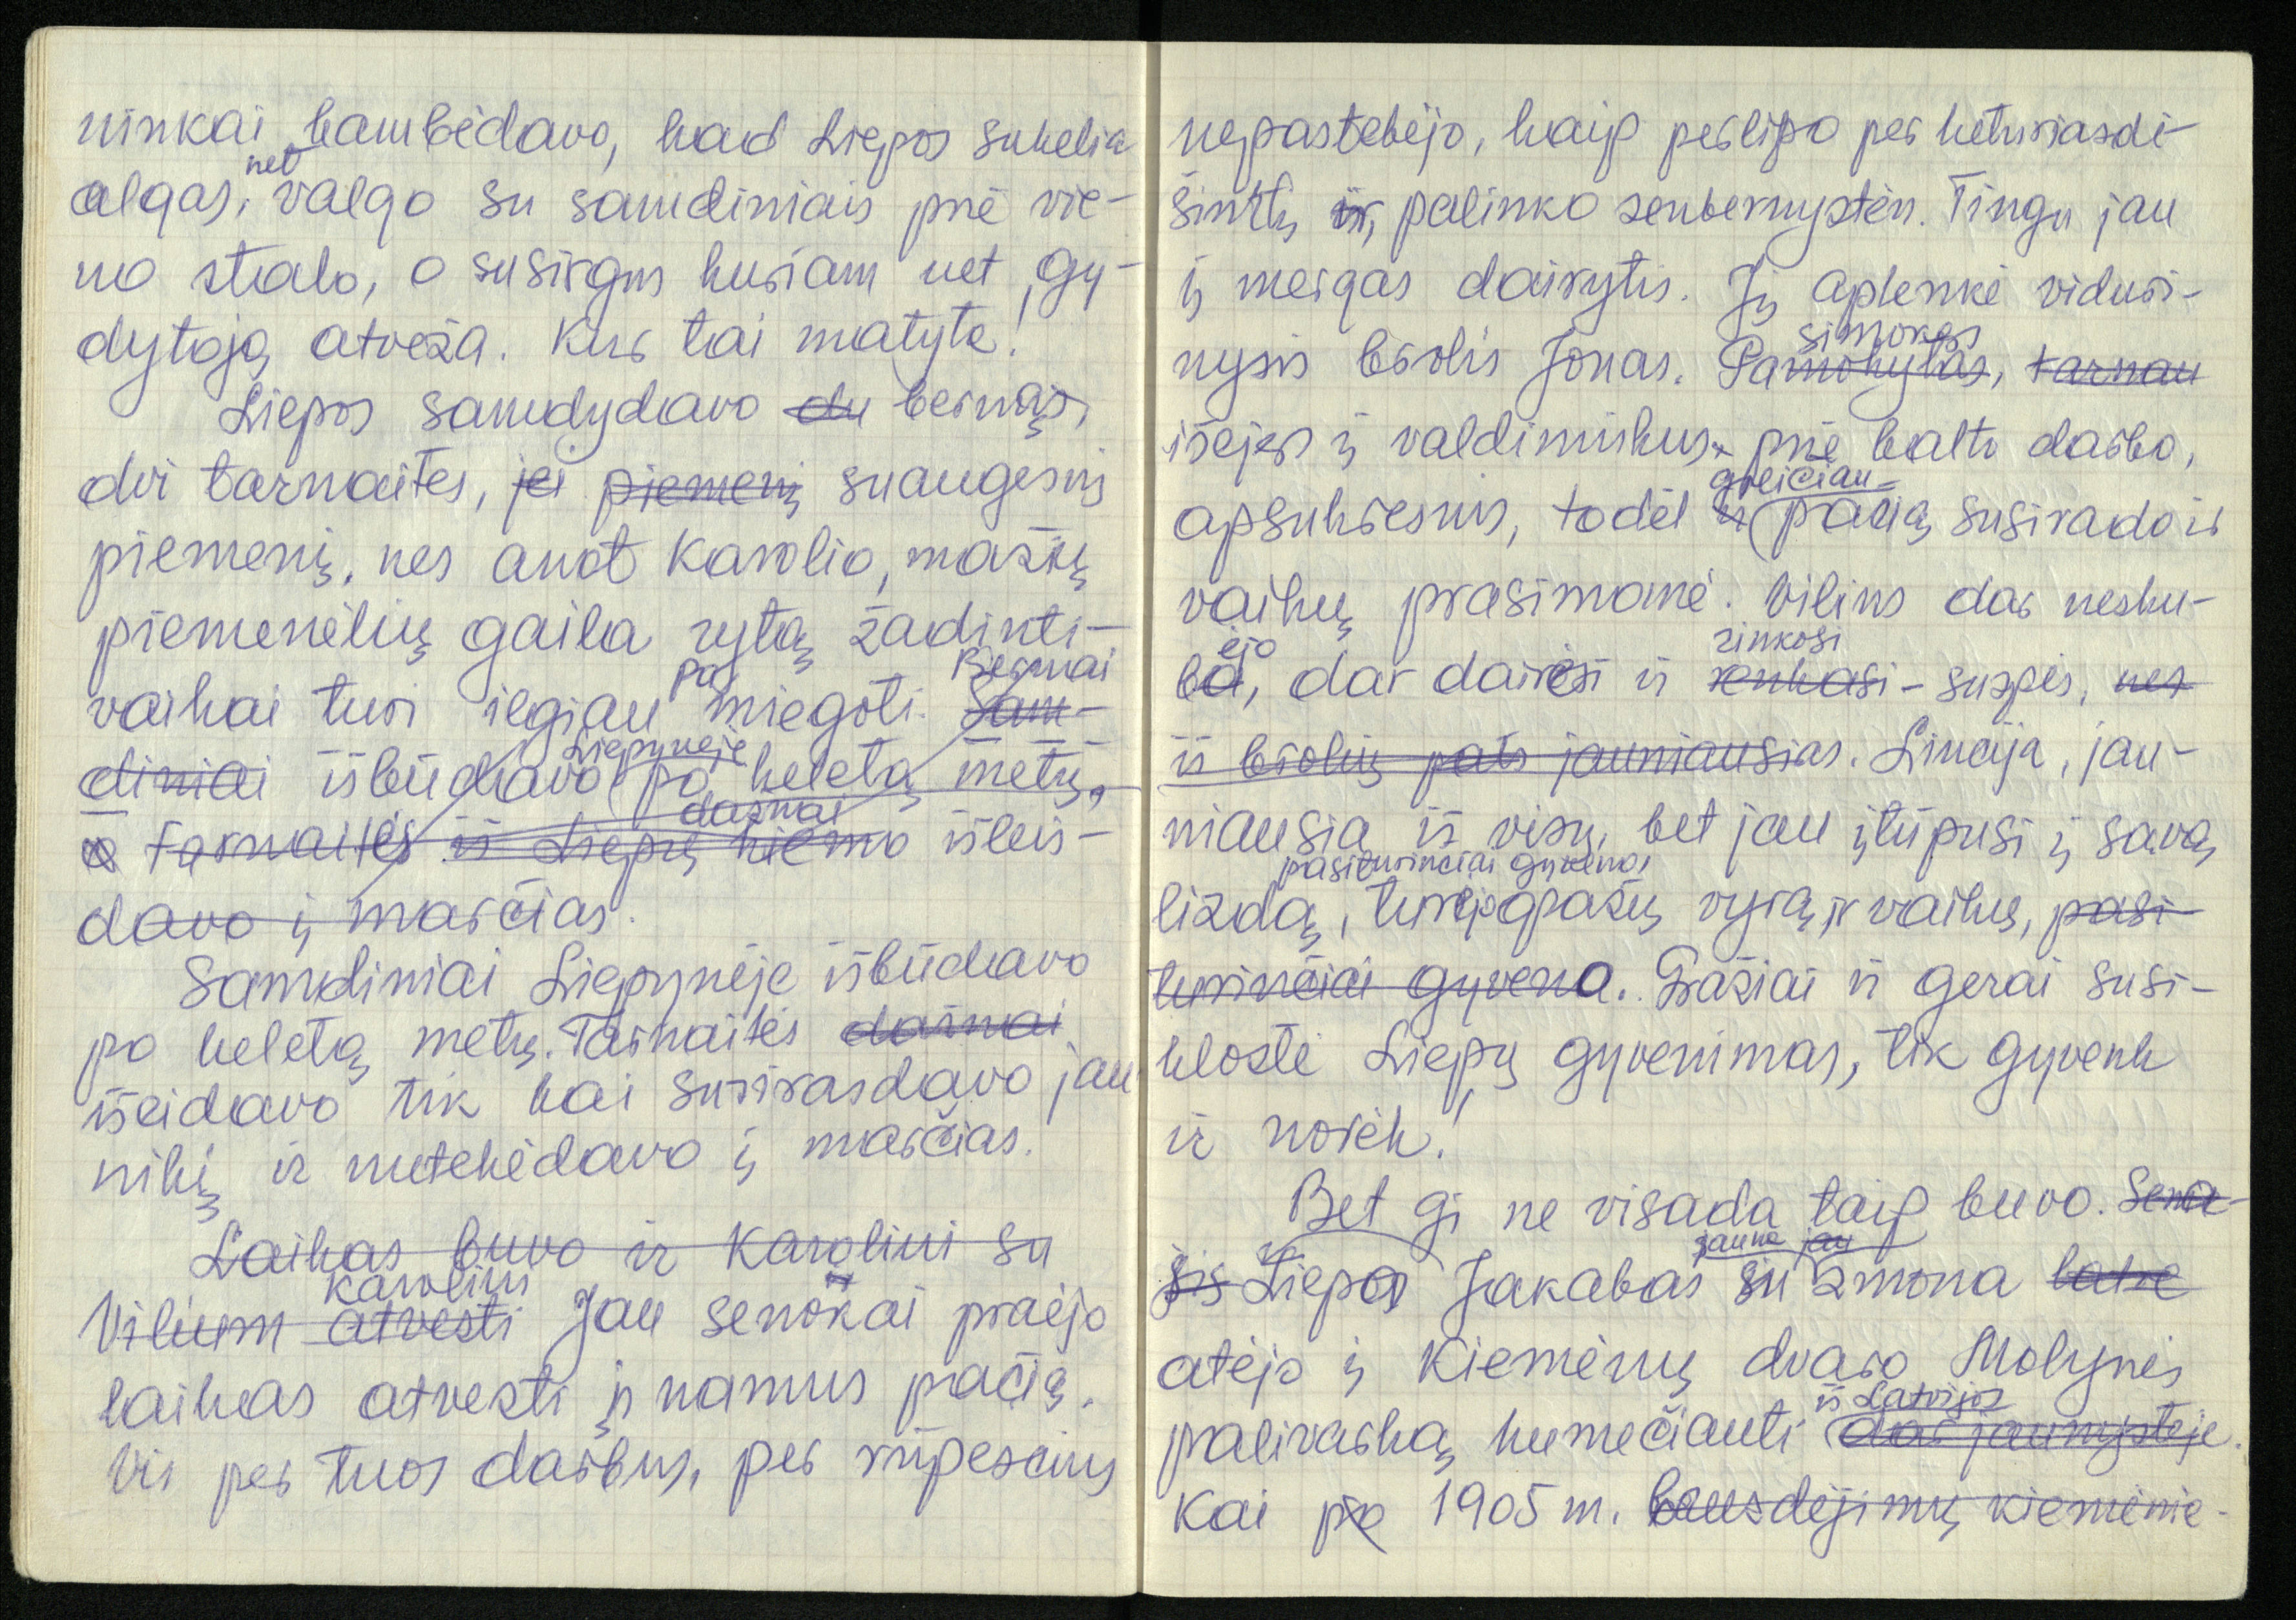 ninkai bambėdavo, kad Liepos sukelia
net
algas, valgo su samdiniais prie vie-
no stalo, o susirgus kuriam net gy-
dytoją atveža. Kur tai matyta!
Liepos samdydavo du bernus,
dvi tarnaites, jei piemenį suaugesnį
piemenį, nes anot Karolio, mažų
piemenėlių gaila rytą žadinti-
pa Bernai
vaikai turi ilgiau miegoti. Sam-
Liepynėje
diniai išbūdavo po keletą metų,
dažnai
o tarnaitės iš Liepų kiemo išleis-
davo į marčias.
Samdiniai Liepynėje išbūdavo
po keletą metų. Tarnaitės dažnai
išeidavo tik kai susirasdavo jau
nikį ir nutekėdavo į marčias.
Laikas buvo ir Karoliui su
Karoliui
Vilium atvesti Jau senokai praėjo
laikas atvesti į namus pačią.
Vis per tuos darbus, per rūpesčius
nepastebėjo, kaip perlipo per keturiasdi-
šimtų ir, palinko senbernystėn. Tingu jau
į mergas dairytis. Jį aplenkė viduri-
simokęs
nysis brolis Jonas. Pamokytas, tarnau
išėjęs į valdininkus, prie balto darbo,
greičiau
apsukresnis, todėl ir pačią susirado ir
vaikų prasimanė. Vilius dar nesku-
ėjo rinkosi
ba, dar dairėsi ir renkasi - suspės, nes
iš brolių pats jauniausias. Lincija, jau-
niausia iš visų, bet jau įtūpusi į savą
pasiturinčiai gyveno,
lizdą, turėjo gražų vyrą ir vaikų, pasi-
turinčiai gyvena. Gražiai ir gerai susi-
klostė Liepų gyvenimas, tik gyvenk
ir norėk!
Bet gi ne visada taip buvo. Sena-
jauna jau
sis Liepa Jakabas su žmona
atėjo į Kiemėnų dvaro Molynės
iš Latvijos
palivarką kumečiauti dar jaunystėje.
Kai po 1905 m. bruzdėjimų kiemėnie-